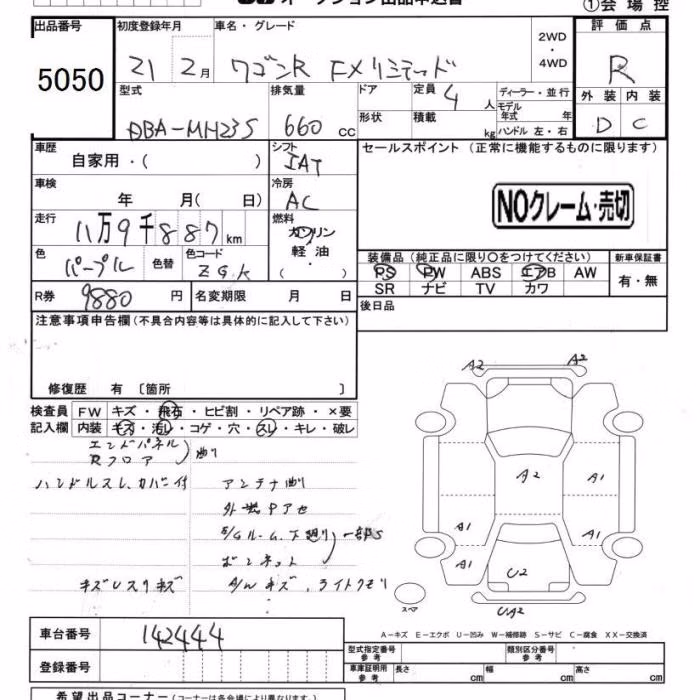 オークション出品申込書
①会場控
出品番号 初度登録年月 車名・グレード 評価点
5050 21 2月 ワゴンR FXリミテッド 2WD・4WD R
型式 排気量 ドア 定員 4人 ディーラー・並行 外装 内装
DBA-MH23S 660cc 形状 積載 kg モデル年式 年式 ハンドル 左・右 D C
車歴 シフト セールスポイント (正常に機能するものに限ります)
自家用・( ) IAT
車検 冷房
年 月( 日) AC NOクレーム・売切
走行 燃料
11万9千887km ガソリン
軽油・( )
色 色替 色コード 装備品 (純正品に限り○をつけてください) 新車保証書
パープル ZGK PS PW ABS エアB AW 有・無
SR ナビ TV カワ
R券 9880円 名変期限 月 日 後日品
注意事項申告欄 (不具合内容等は具体的に記入して下さい)
修復歴 有 〔箇所 〕
検査員 FW キズ・飛石・ヒビ割・リペア跡・×要
記入欄 内装 キズ・汚レ・コゲ・穴・スレ・キレ・破レ
エンドパネル
Rフロア 曲り
ハンドルスレ、カバー付 アンテナ曲り
外装中アセ
E/Gルーム、下廻り 一部S
ボンネット
キズUスリキズ A/Wキズ、ライトクモリ
A2 A2
A2 A1
A1 A1
A1 U2
スペア UA2
A-キズ E-エクボ U-凹み W-補修跡 S-サビ C-腐食 XX-交換済
車台番号 142444
型式指定番号 参考 類別区分番号 参考
登録番号 車庫証明用 参考 長さ cm 幅 cm 高さ cm
希望出品コーナー (コーナーは各会場により異なります)